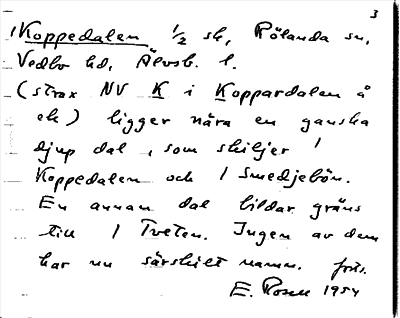 3
1 Koppedalen 1/2 sk, Rölanda sn,
Vedbo hd, Älvsb. l.
(strax NV K i Koppardalen å
ek) ligger nära en ganska
djup dal, som skiljer 1
Koppedalen och 1 Smedjebön.
En annan dal bildar gräns
till 1 Tveten. Ingen av dem
har nu särskilt namn.
E. Rosell 1954